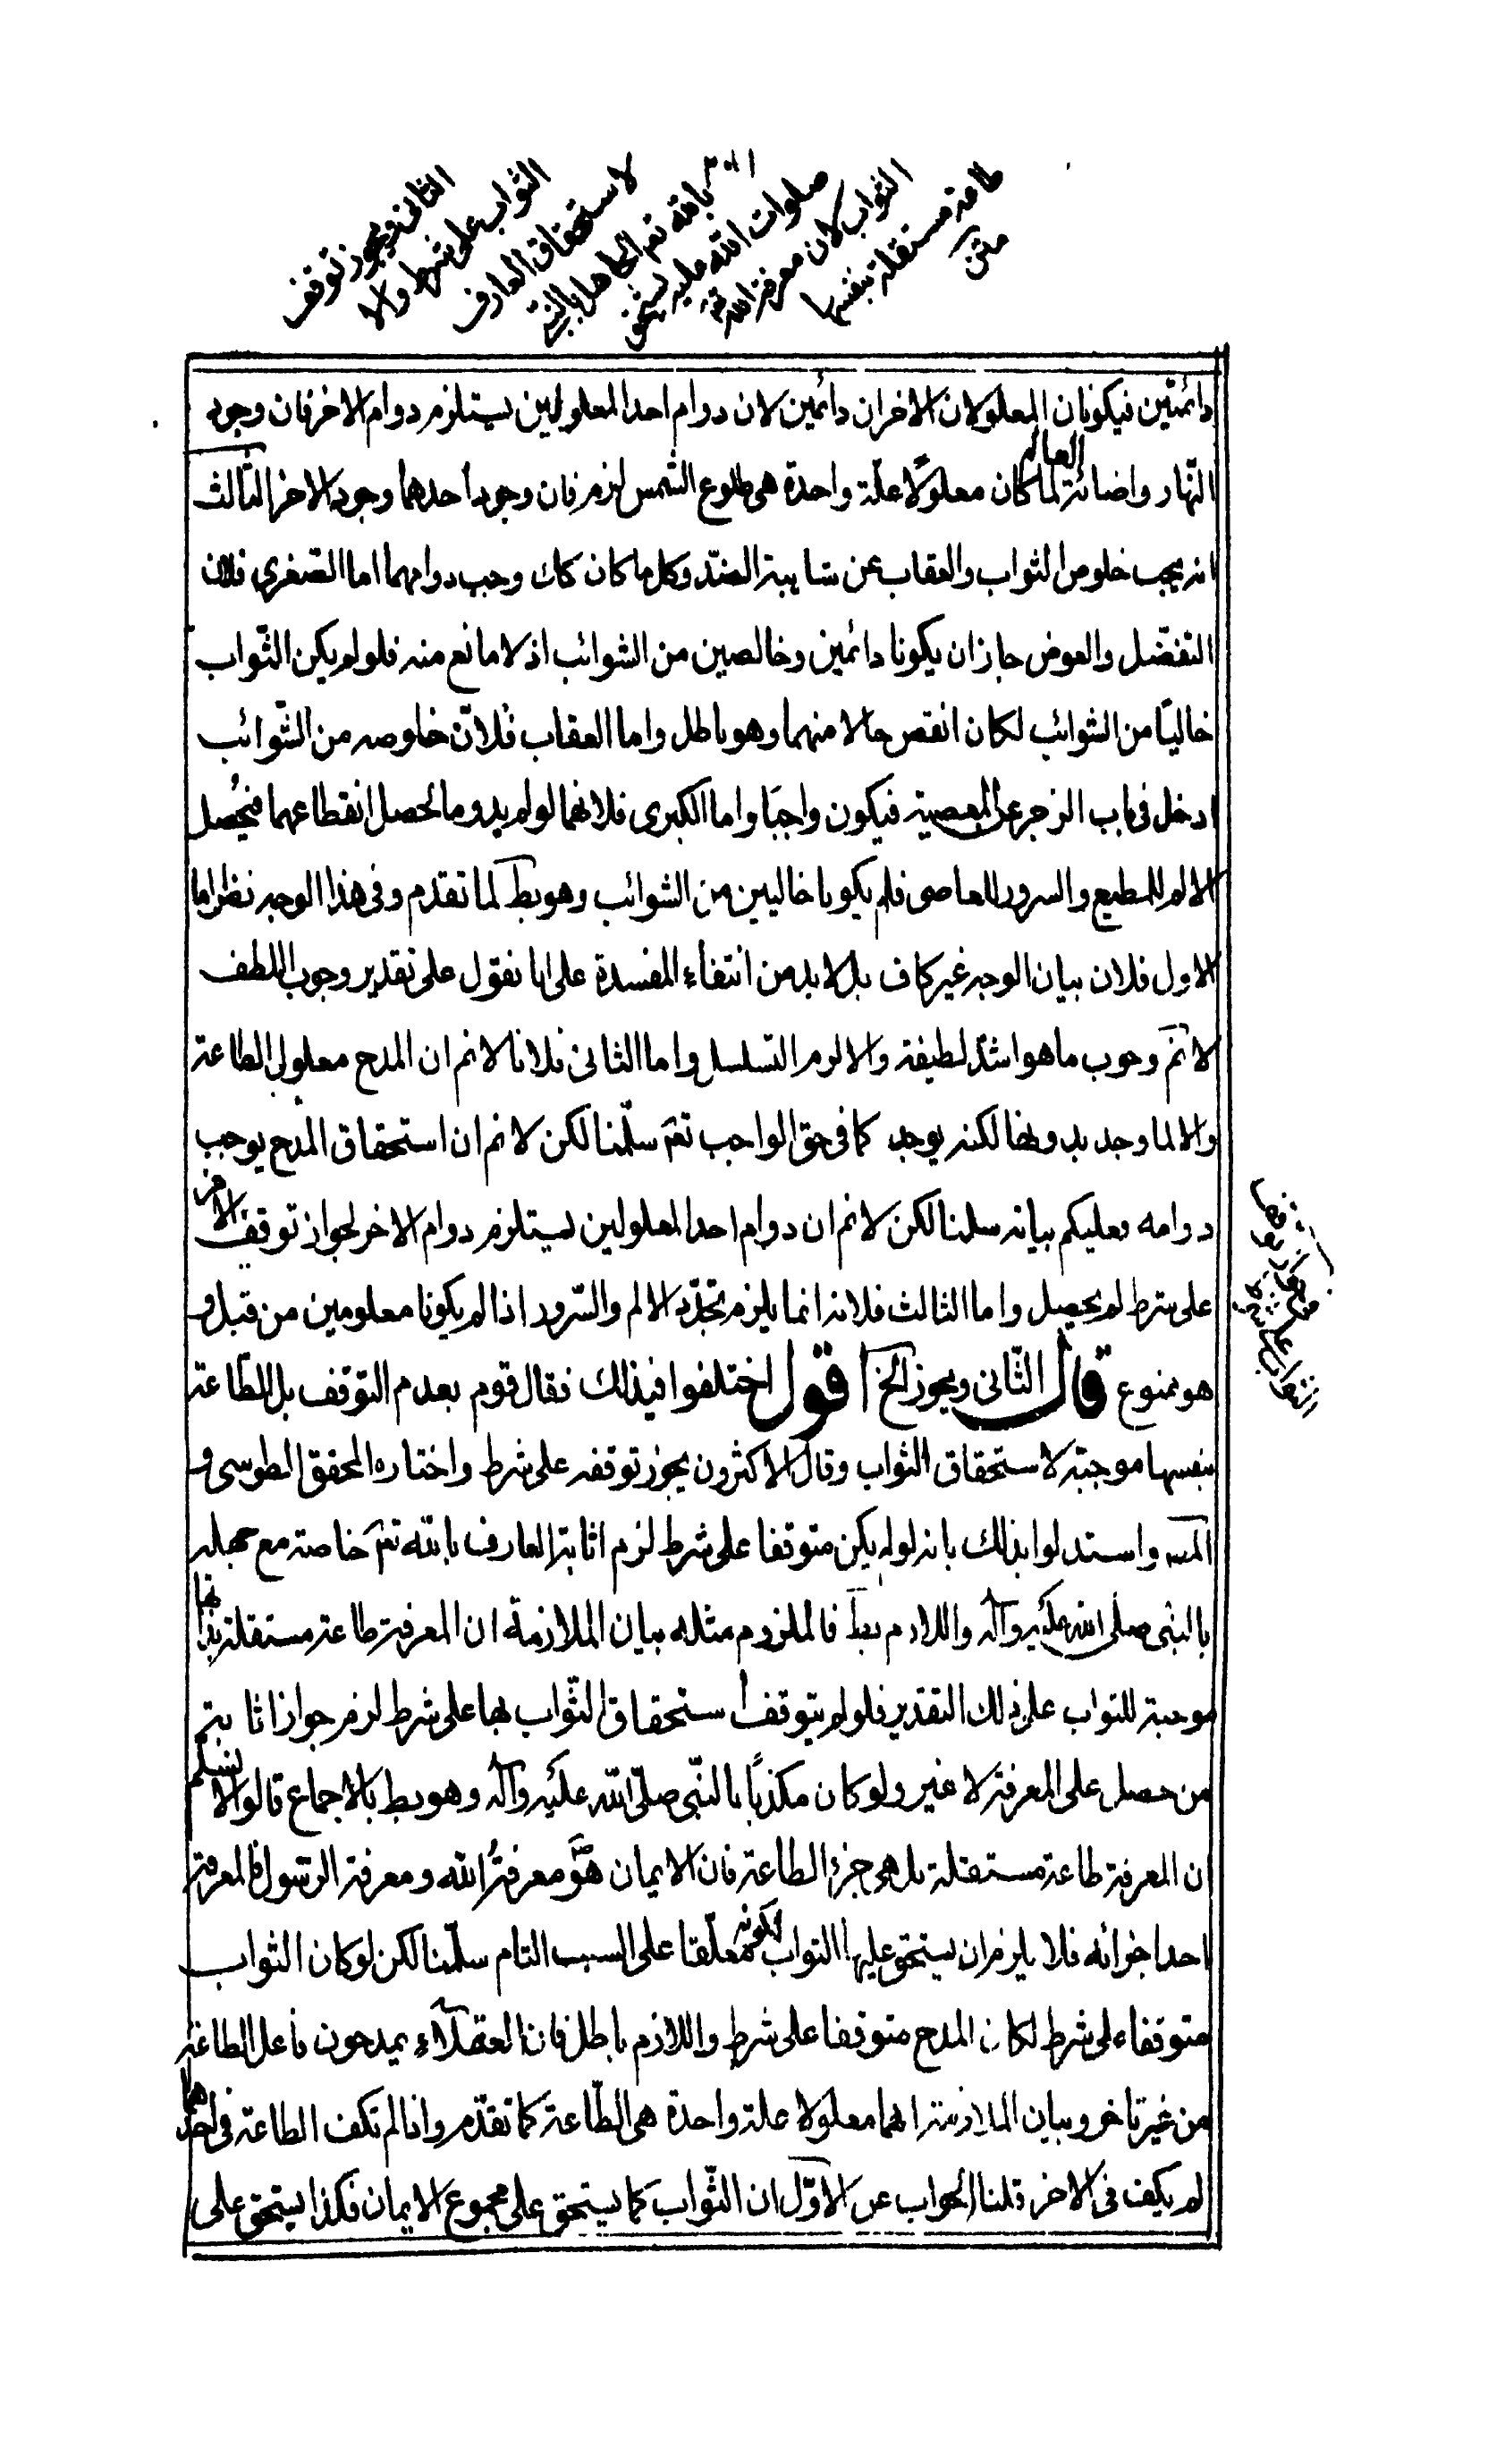 الثانى ويجوز توقف
الثواب على شرط والا
لاستحقاق العارف
بالله تعم الجاهل بالنبى
صلوات الله عليه يستحق
الثواب لان معرفة الله تم
طاعة مستقلة بنفسها
متن
دائمتين فيكونان المعلولان الاخران دائمين لان دوام احد المعلولين يستلزم دوام الاخر فان وجود
النهار واضائة العالم لما كان معلولا علة واحدة هى طلوع الشمس لزم فان وجود احدهما وجود الاخر الثالث
انه يجب خلوص الثواب والعقاب عن شايبة الضد وكل ما كان كك وجب دوامهما اما الصغرى فلان
التفضل والعوض جاز ان يكونا دائمين وخالصين من الشوائب اذ لا مانع منه فلو لم يكن الثواب
خاليا من الشوائب لكان انقص حالا منهما وهو باطل واما العقاب فلان خلوصه من الشوائب
ادخل فى باب الزجر عن المعصية فيكون واجبا واما الكبرى فلانهما لو لم يدوما لحصل انقطاعهما فيحصل
الالم للمطيع والسرور للعاصى فلم يكونا خاليين من الشوائب وهو بط لما تقدم وفى هذا الوجه نظر اما
الاول فلان بيان الوجه غير كاف بل لا بد من انتفاء المفسدة على انا نقول على تقدير وجوب اللطف
لا نم وجوب ما هو اشد لطيفة والا لزم التسلسل واما الثانى فلانا لا نم ان المدح معلول الطاعة
والا لما وجد بدونها لكنه يوجد كما فى حق الواجب تعم سلمنا لكن لا نم ان استحقاق المدح يوجب
دوامه فعليكم بيانه سلمنا لكن لا نم ان دوام احد المعلولين يستلزم دوام الاخر لجواز توقف الاخر
على شرط لم يحصل واما الثالث فلانه انما يلزم تجدد الالم والسرور اذا لم يكونا معلومين من قبل و
هو ممنوع قال الثانى ويجوز الخ اقول اختلفوا فيذلك فقال قوم بعدم التوقف بل الطاعة
بنفسها موجبة لاستحقاق الثواب وقال الاكثرون يجوز توقفه على شرط واختاره المحقق الطوسى و
المص واستدلوا بذلك بانه لو لم يكن متوقفا على شرط لزم اثابة العارف بالله تعم خاصة مع جهله
بالنبى صلى الله عليه وآله واللازم بط فالملزوم مثله بيان الملازمة ان المعرفة طاعة مستقلة بذاتها
موجبة للثواب على ذلك التقدير فلو لم يتوقف استحقاق الثواب بها على شرط لزم جواز اثابة
من حصل على المعرفة لا غير ولو كان مكذبا بالنبى صلى الله عليه وآله وهو بط بالاجماع قالوا لا نسلم
ان المعرفة طاعة مستقلة بل هى جزء الطاعة فان الايمان هو معرفة الله ومعرفة الرسول فالمعرفة
احد اجزائه فلا يلزم ان يستحق عليها الثواب لكونه معلقا على السبب التام سلمنا لكن لو كان الثواب
متوقفا على شرط لكان المدح متوقفا على شرط واللازم باطل فان العقلاء يمدحون فاعل الطاعة
من غير تاخر وبيان الملازمة انهما معلولا علة واحدة هى الطاعة كما تقدم واذا لم تكف الطاعة فى احدهما
لم يكف فى الاخر قلنا الجواب عن الاول ان الثواب كما يستحق على مجموع الايمان فكذا يستحق على